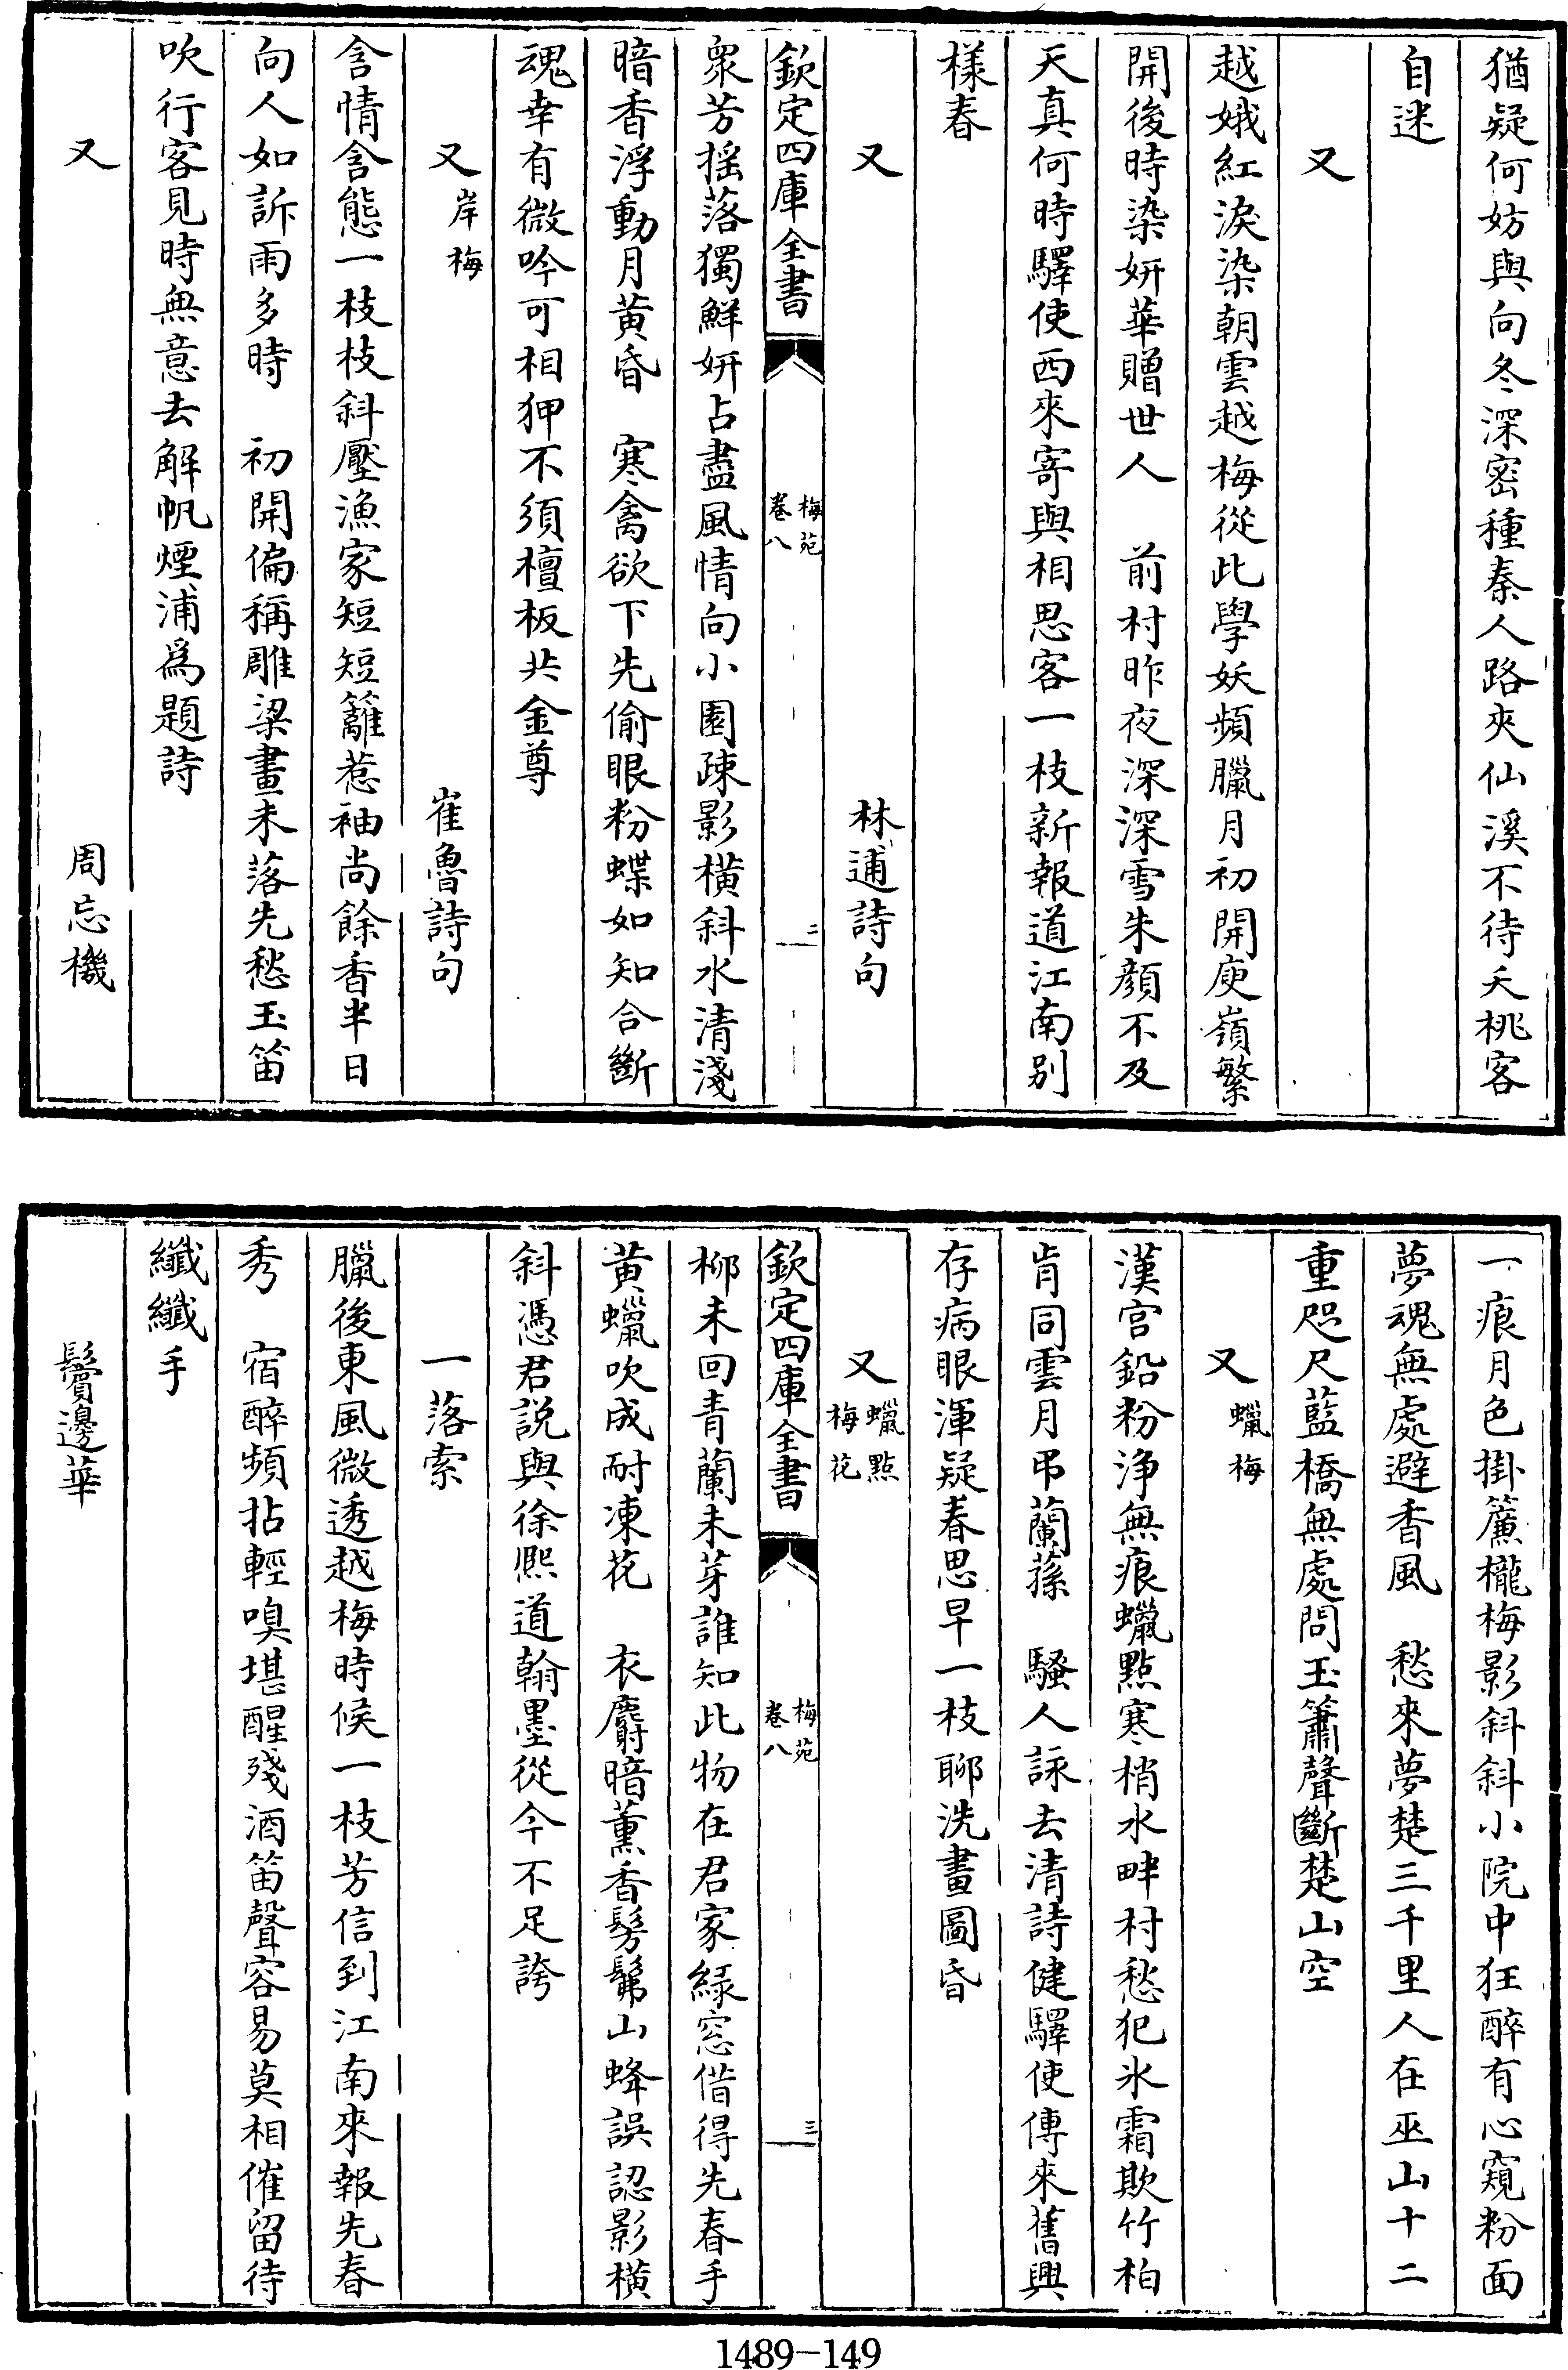 猶疑何妨與向冬深密種秦人路夾仙溪不待夭桃客
自迷
又
越娥紅淚染朝雲越梅從此學妖頻臘月初開庾嶺繁
開後時染妍華贈世人　前村昨夜深深雪朱顔不及
天真何時驛使西來寄與相思客一枝新報道江南别
樣春
又　林逋詩句
欽定四庫全書　梅苑卷八　二
衆芳揺落獨鮮妍占盡風情向小園疎影横斜水清淺
暗香浮動月黄昏　寒禽欲下先偷眼粉蝶如知合斷
魂幸有微吟可相狎不須檀板共金尊
又岸梅　崔魯詩句
含情含態一枝枝斜壓漁家短短籬惹袖尚餘香半日
向人如訴雨多時　初開偏稱雕梁畫未落先愁玉笛
吹行客見時無意去解帆煙浦爲題詩
又　周忘機
一痕月色掛簾櫳梅影斜斜小院中狂醉有心窺粉面
夢魂無處避香風　愁來夢楚三千里人在巫山十二
重咫尺藍橋無處問玉簫聲斷楚山空
又蠟梅
漢宫鉛粉浄無痕蠟點寒梢水畔村愁犯氷霜欺竹柏
肯同雲月弔蘭蓀　騷人詠去清詩健驛使傳來舊興
存病眼渾疑春思早一枝聊洗畫圖昏
又蠟點梅花
欽定四庫全書　梅苑卷八　三
柳未回青蘭未芽誰知此物在君家緑窓借得先春手
黄蠟吹成耐凍花　衣麝暗薰香髣髴山蜂誤認影横
斜憑君説與徐熙道翰墨從今不足誇
一落索
臘後東風微透越梅時候一枝芳信到江南來報先春
秀　宿醉頻拈輕嗅堪醒殘酒笛聲容易莫相催留待
纖纖手
鬢邊華
1489-149